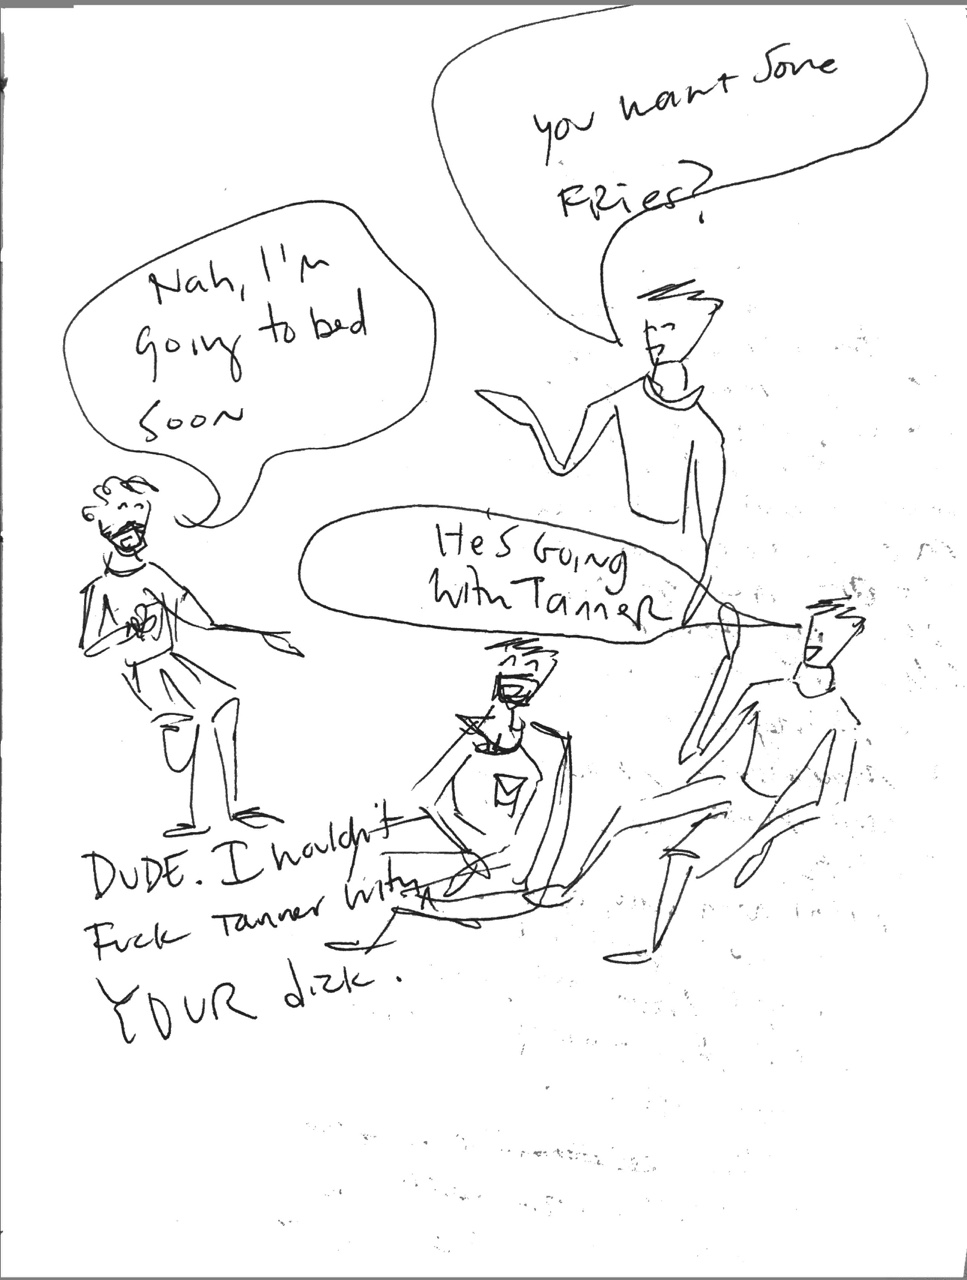 You want some
FRies?
Nah, I'm
going to bed
soon
He's Going
With Tanner
DUDE. I wouldn't
Fuck Tanner with
YOUR dick.